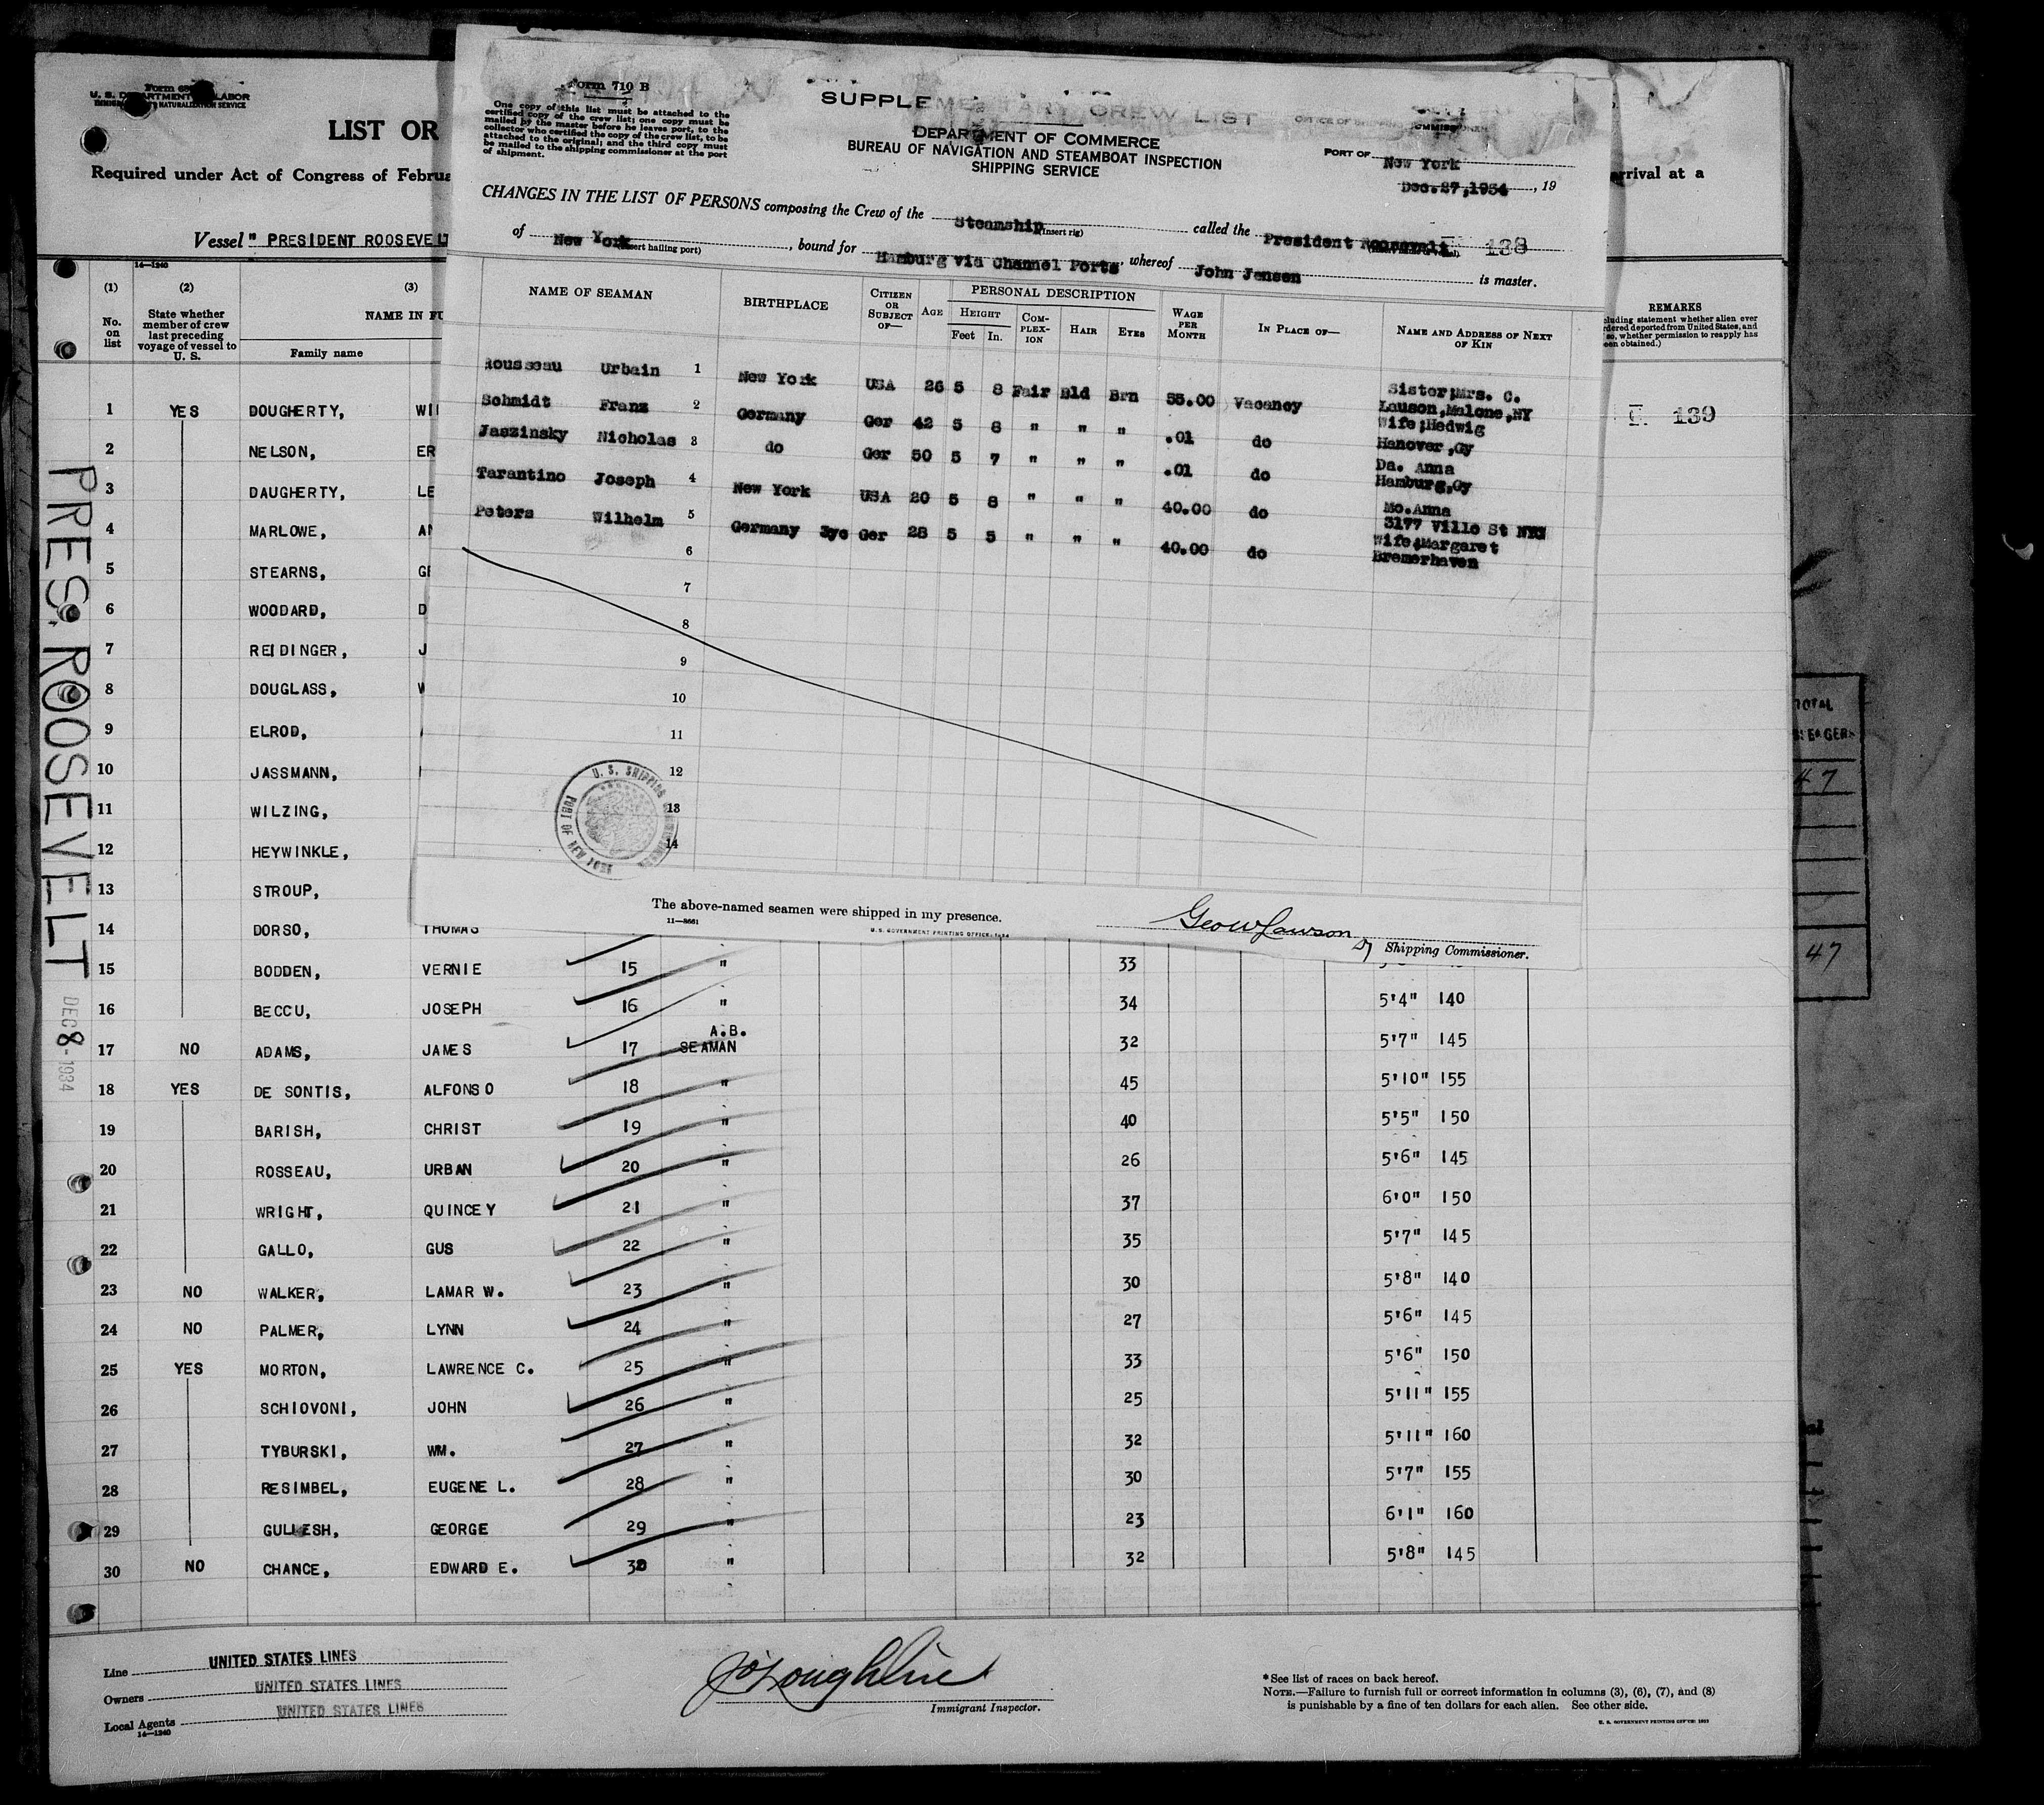 Form 710 B
One copy of this list must be attached to the
certified copy of the crew list; one copy must be
mailed by the master before he leaves port, to the
collector who certified the copy of the crew list, to be
attached to the original; and the third copy must
be mailed to the shipping commissioner at the port
of shipment.
SUPPLEMENTARY CREW LIST
DEPARTMENT OF COMMERCE
BUREAU OF NAVIGATION AND STEAMBOAT INSPECTION
SHIPPING SERVICE
PORT OF New York
Dec. 27, 1934, 19
CHANGES IN THE LIST OF PERSONS composing the Crew of the Steamship (Insert rig) called the President Roosevelt 138
of New York (Insert hailing port), bound for Hamburg via Channel Ports, whereof John Jensen is master.
NAME OF SEAMAN BIRTHPLACE CITIZEN OR SUBJECT OF— AGE PERSONAL DESCRIPTION HEIGHT Feet In. COMPLEXION HAIR EYES WAGE PER MONTH IN PLACE OF— NAME AND ADDRESS OF NEXT OF KIN
Rousseau Urbain 1 New York USA 26 5 8 Fair Bld Brn 55.00 Vacancy Sister;Mrs. C. Lauson,Malone,NY
Schmidt Franz 2 Germany Ger 42 5 8 " " " .01 do Wife;Hedwig Hanover,Gy
Jaszinsky Nicholas 3 do Ger 50 5 7 " " " .01 do Da. Anna Hamburg,Gy
Tarantino Joseph 4 New York USA 20 5 8 " " " 40.00 do Mo.Anna 3177 Ville St NYC
Peters Wilhelm 5 Germany 3yc Ger 28 5 5 " " " 40.00 do Wife;Margaret Bremerhaven
6
7
8
9
10
11
12
13
14
U. S. SHIPPING
PORT OF NEW YORK
The above-named seamen were shipped in my presence.
11—8661
U. S. GOVERNMENT PRINTING OFFICE
Geo W Lawson
Shipping Commissioner.
U. S. DEPARTMENT OF LABOR
IMMIGRATION & NATURALIZATION SERVICE
LIST OR
Required under Act of Congress of Februa
arrival at a
Vessel " PRESIDENT ROOSEVELT
14—1240
(1) (2) (3)
No. on list
State whether member of crew last preceding voyage of vessel to U. S.
NAME IN FU
Family name
REMARKS
139
1 YES DOUGHERTY, WIL
2 NELSON, ER
3 DAUGHERTY, LE
4 MARLOWE, AN
5 STEARNS, GE
6 WOODARD, D
7 REIDINGER, J
8 DOUGLASS, W
9 ELROD,
10 JASSMANN,
11 WILZING,
12 HEYWINKLE,
13 STROUP,
14 DORSO, THOMAS
15 BODDEN, VERNIE 15 " 33
16 BECCU, JOSEPH 16 " 34 5'4" 140
17 NO ADAMS, JAMES 17 A.B. SEAMAN 32 5'7" 145
18 YES DE SONTIS, ALFONSO 18 " 45 5'10" 155
19 BARISH, CHRIST 19 " 40 5'5" 150
20 ROSSEAU, URBAN 20 " 26 5'6" 145
21 WRIGHT, QUINCEY 21 " 37 6'0" 150
22 GALLO, GUS 22 " 35 5'7" 145
23 NO WALKER, LAMAR W. 23 " 30 5'8" 140
24 NO PALMER, LYNN 24 " 27 5'6" 145
25 YES MORTON, LAWRENCE C. 25 " 33 5'6" 150
26 SCHIOVONI, JOHN 26 " 25 5'11" 155
27 TYBURSKI, WM. 27 " 32 5'11" 160
28 RESIMBEL, EUGENE L. 28 " 30 5'7" 155
29 GULLESH, GEORGE 29 " 23 6'1" 160
30 NO CHANCE, EDWARD E. 30 " 32 5'8" 145
PRES. ROOSEVELT
DEC 8 - 1934
TOTAL
47
47
Line UNITED STATES LINES
Owners UNITED STATES LINES
Local Agents UNITED STATES LINES
14—1240
J O'Loughlin
Immigrant Inspector.
*See list of races on back hereof.
NOTE.—Failure to furnish full or correct information in columns (3), (6), (7), and (8)
is punishable by a fine of ten dollars for each alien. See other side.